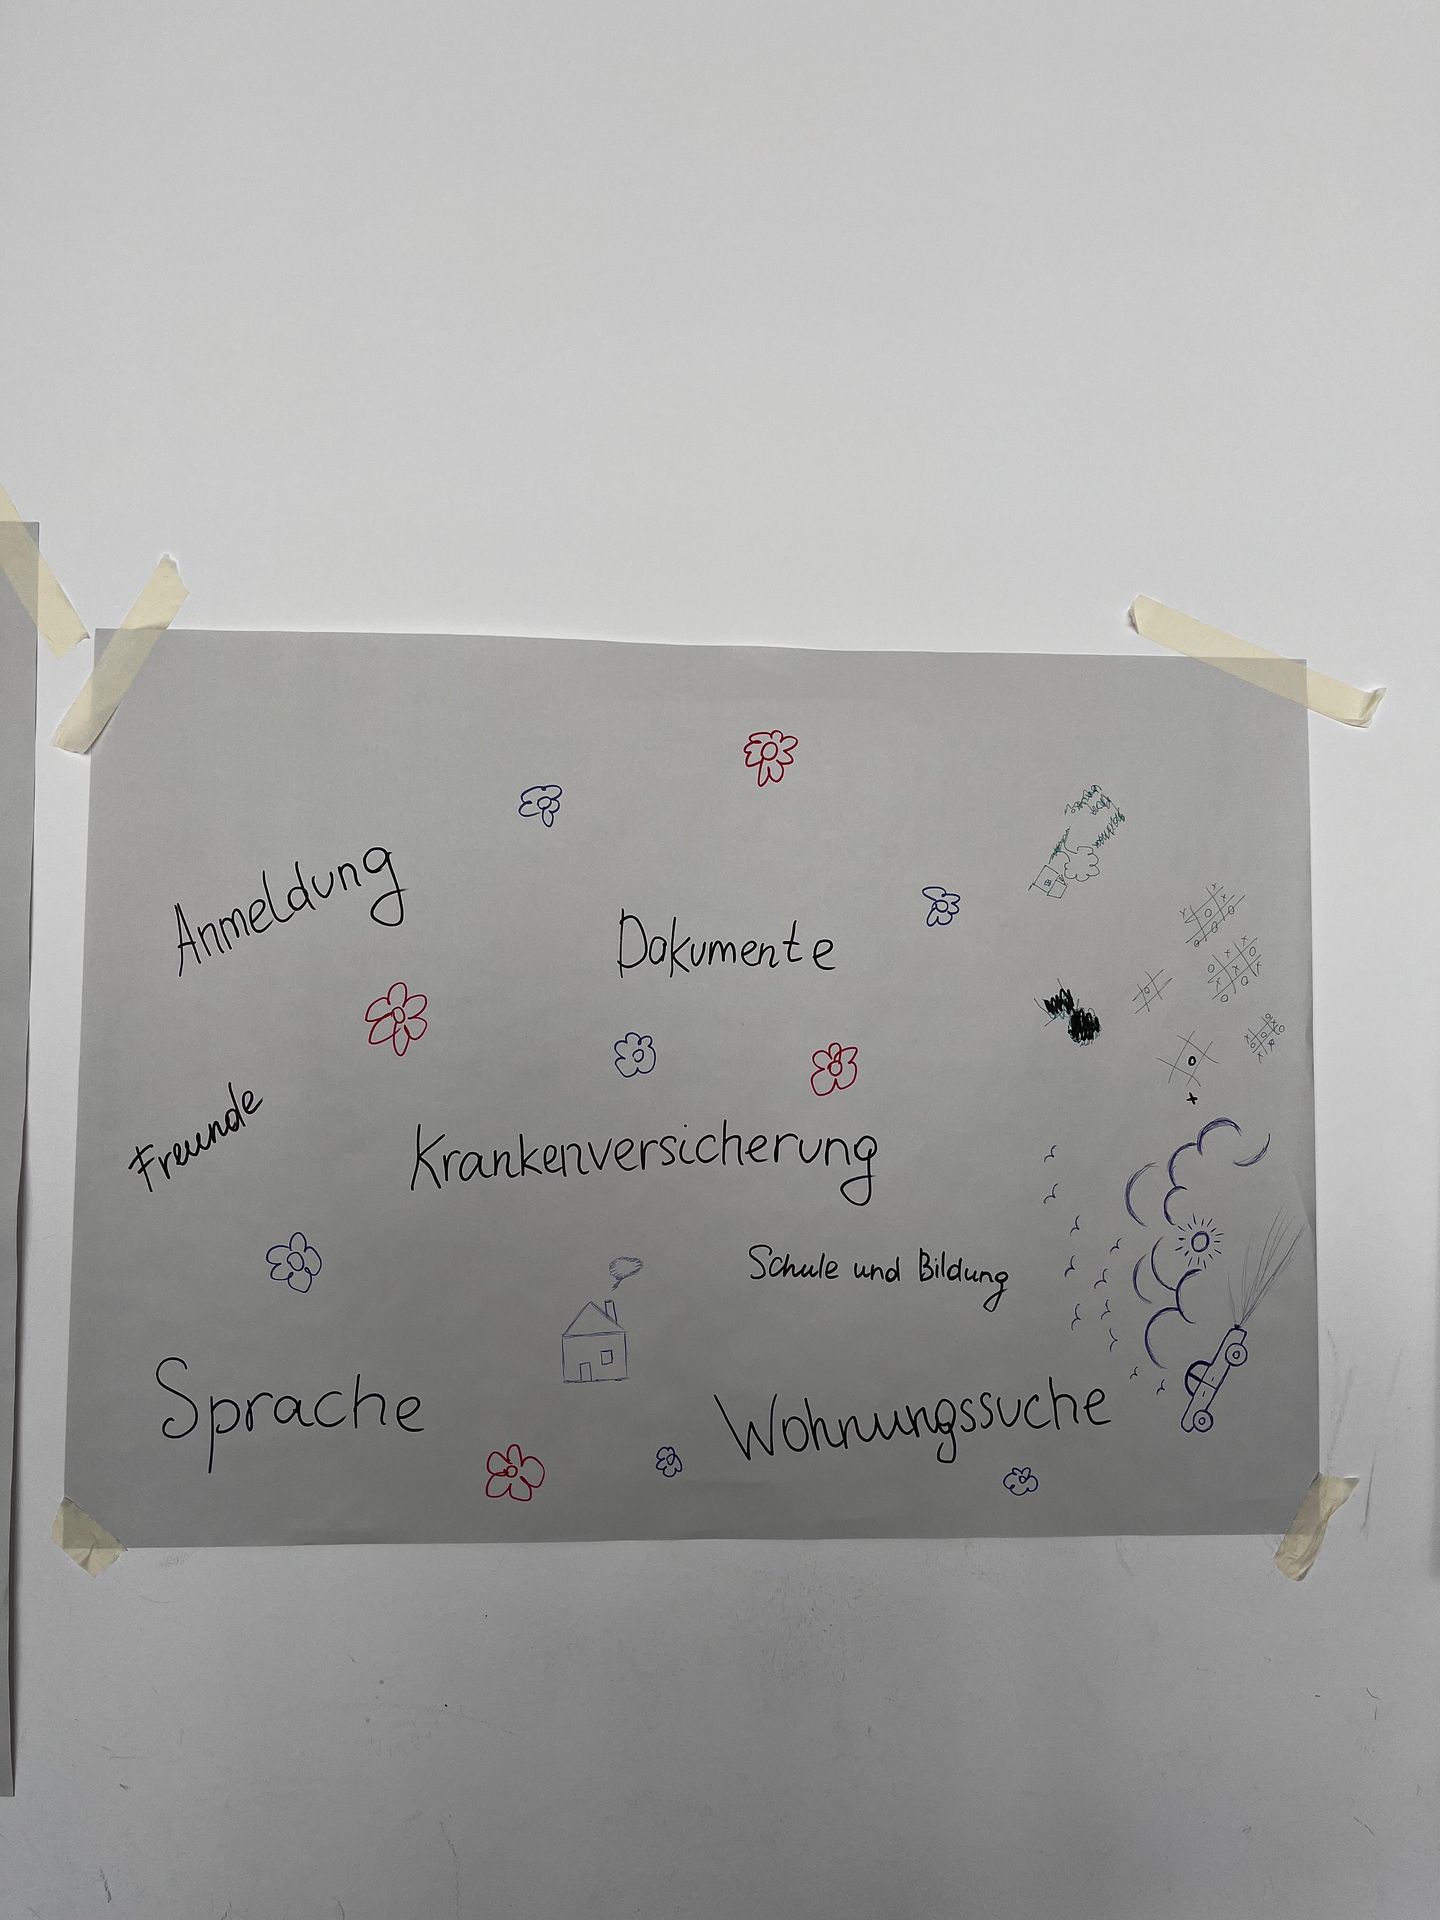 Anmeldung
Dokumente
Freunde
Krankenversicherung
Schule und Bildung
Sprache
Wohnungssuche